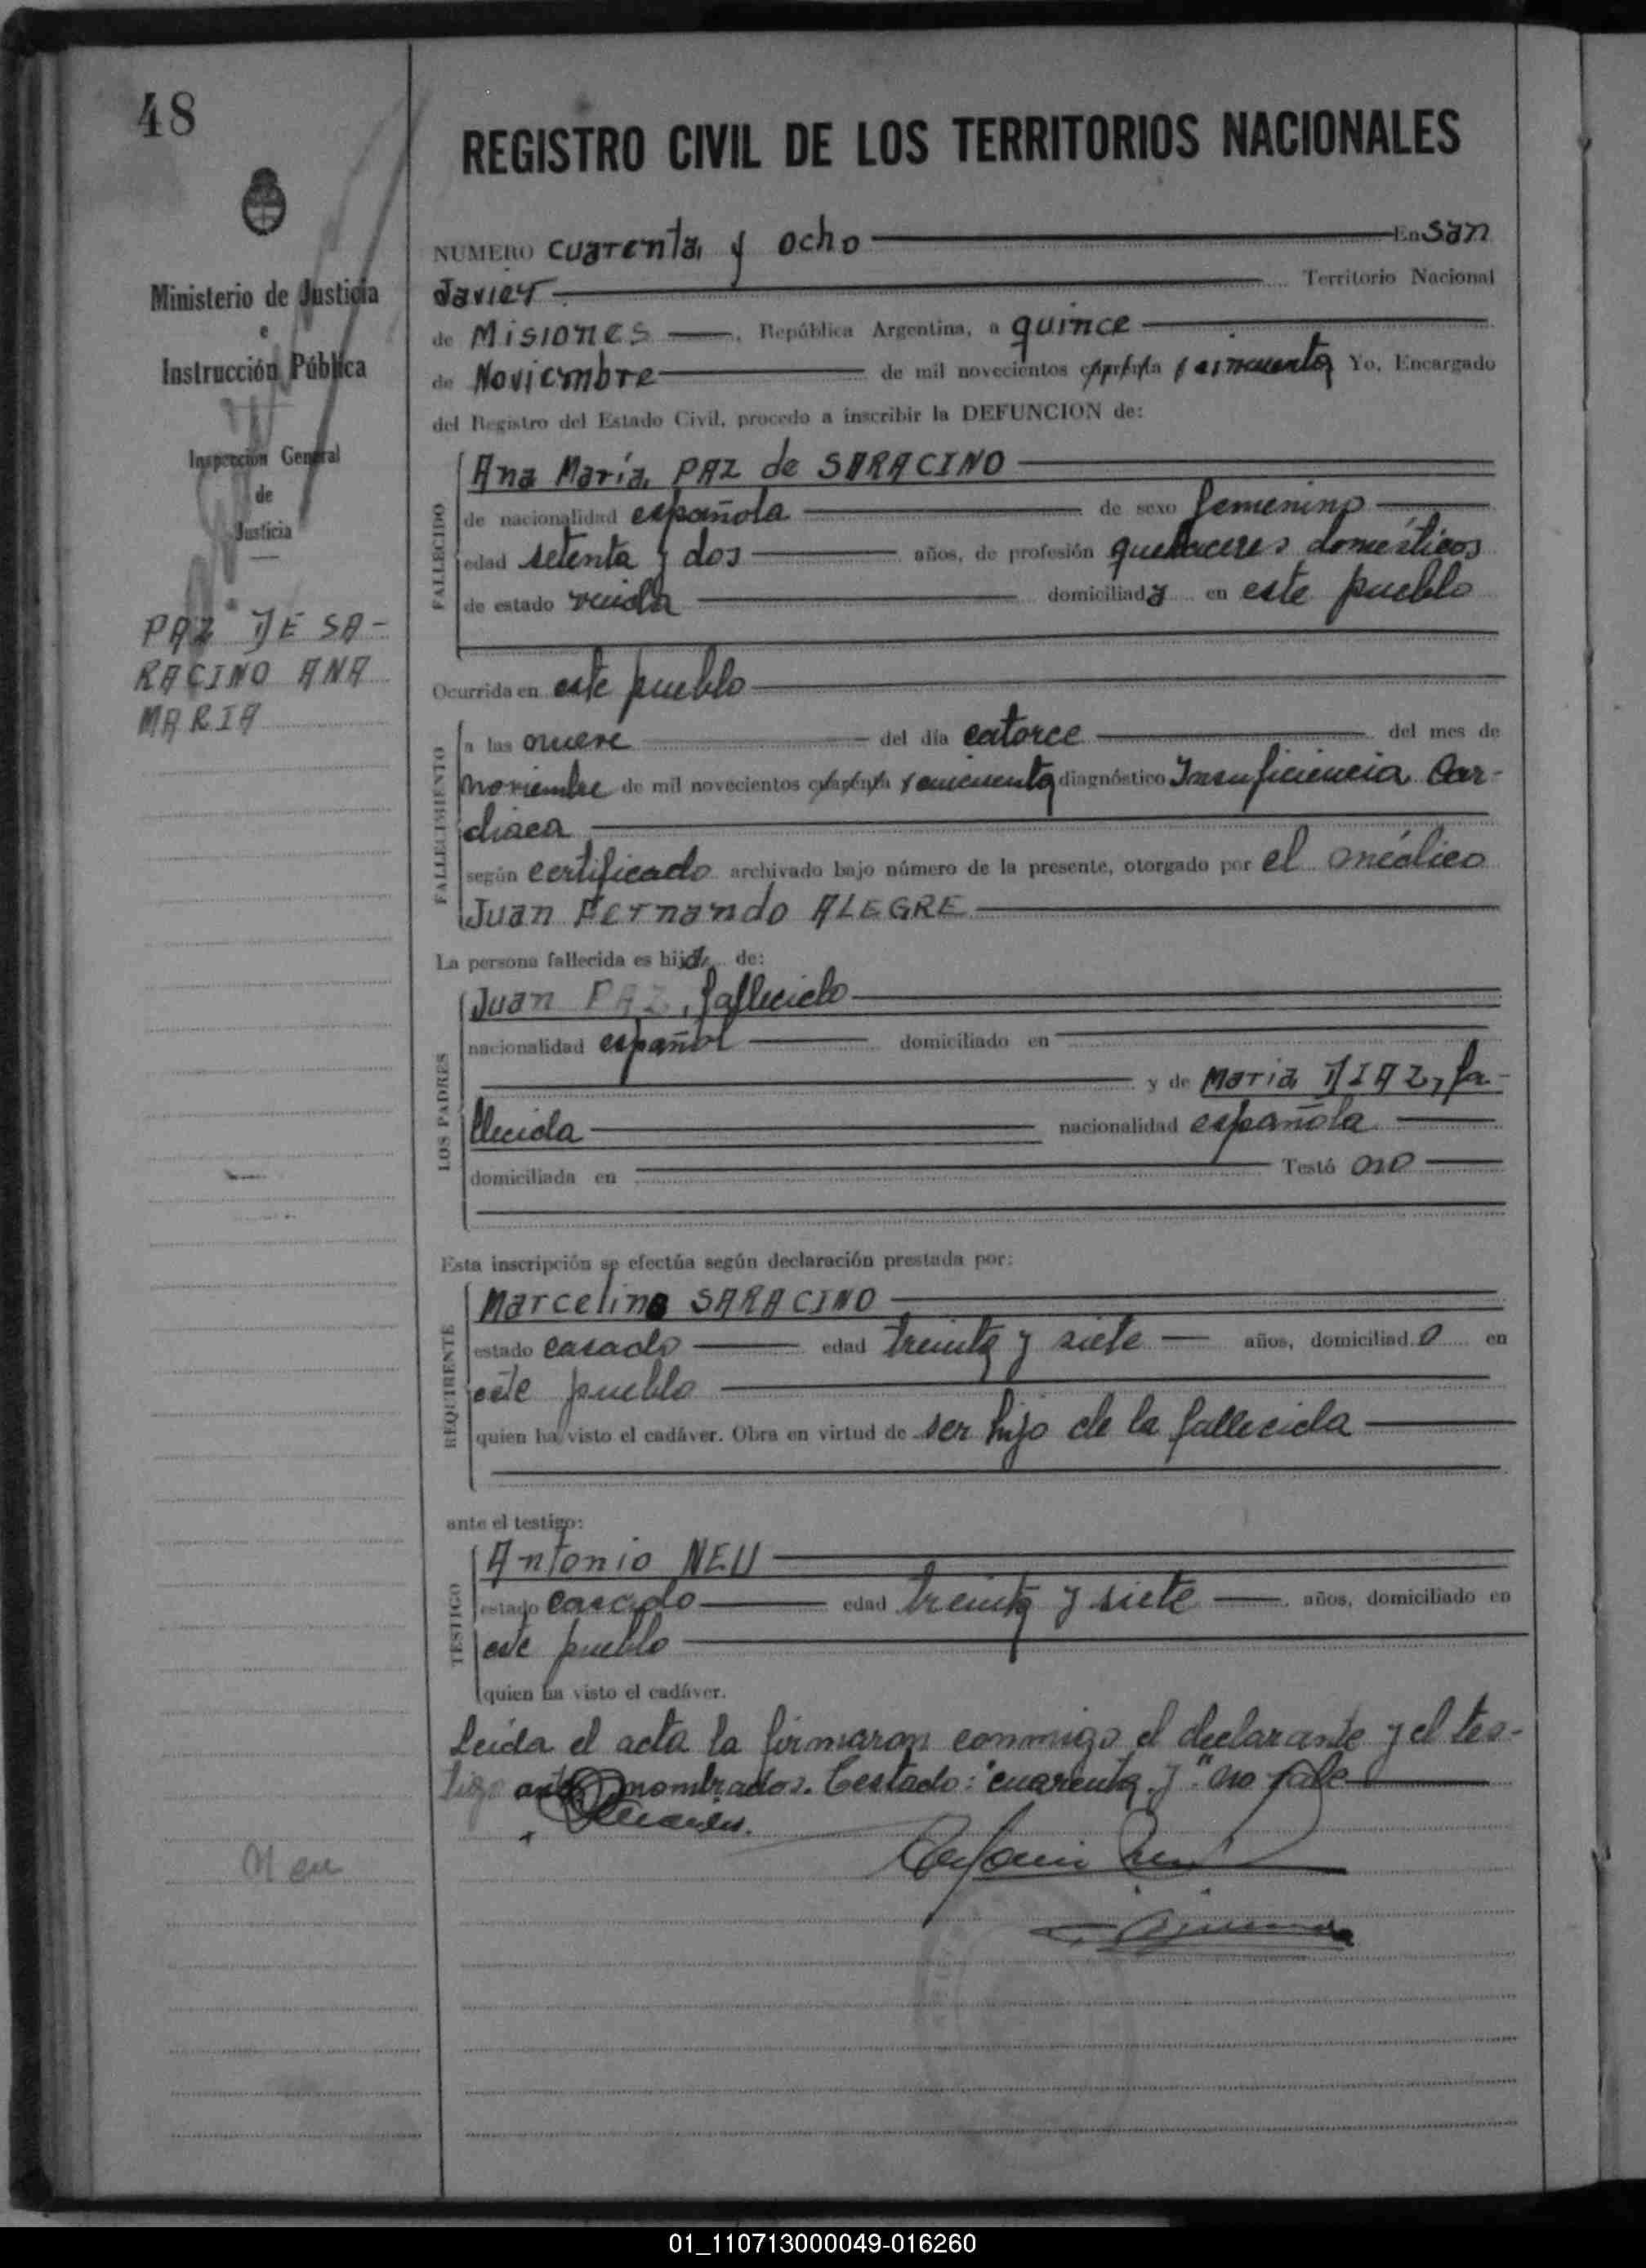 48
REGISTRO CIVIL DE LOS TERRITORIOS NACIONALES
Ministerio de Justicia
e
Instrucción Pública
Inspección General
de
Justicia
PAZ DE SA-
RACINO ANA
MARIA
Neu
NUMERO cuarenta y ocho En San
Javier Territorio Nacional
de Misiones, República Argentina, a quince
de Noviembre de mil novecientos cuarenta y cincuenta Yo, Encargado
del Registro del Estado Civil, procedo a inscribir la DEFUNCION de:
FALLECIDO
Ana María PAZ de SARACINO
de nacionalidad española de sexo femenino
edad setenta y dos años, de profesión quehaceres domésticos
de estado viuda domiciliada en este pueblo
Ocurrida en este pueblo
FALLECIMIENTO
a las nueve del día catorce del mes de
noviembre de mil novecientos cuarenta y cincuenta diagnóstico Insuficiencia Car-
diaca
según certificado archivado bajo número de la presente, otorgado por el médico
Juan Fernando ALEGRE
La persona fallecida es hija de:
LOS PADRES
Juan PAZ, fallecido
nacionalidad español domiciliado en
y de Maria DIAZ, fa-
llecida nacionalidad española
domiciliada en Testó no
Esta inscripción se efectúa según declaración prestada por:
REQUIRENTE
Marcelino SARACINO
estado casado edad treinta y siete años, domiciliado en
este pueblo
quien ha visto el cadáver. Obra en virtud de ser hijo de la fallecida
ante el testigo:
TESTIGO
Antonio NEU
estado casado edad treinta y siete años, domiciliado en
este pueblo
quien ha visto el cadáver.
Leída el acta la firmaron conmigo el declarante y el tes-
tigo ante nombrados. Testado: "cuarenta y" no vale
01_110713000049-016260